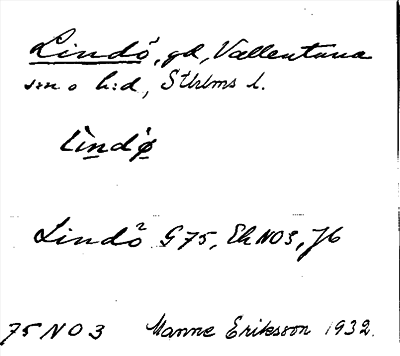 Lindö, gd, Vallentuna
sn o h:d, Sthlms l.
lìndǿ
Lindö G 75, Ek NO3, Jb
75 NO 3 Manne Eriksson 1932.